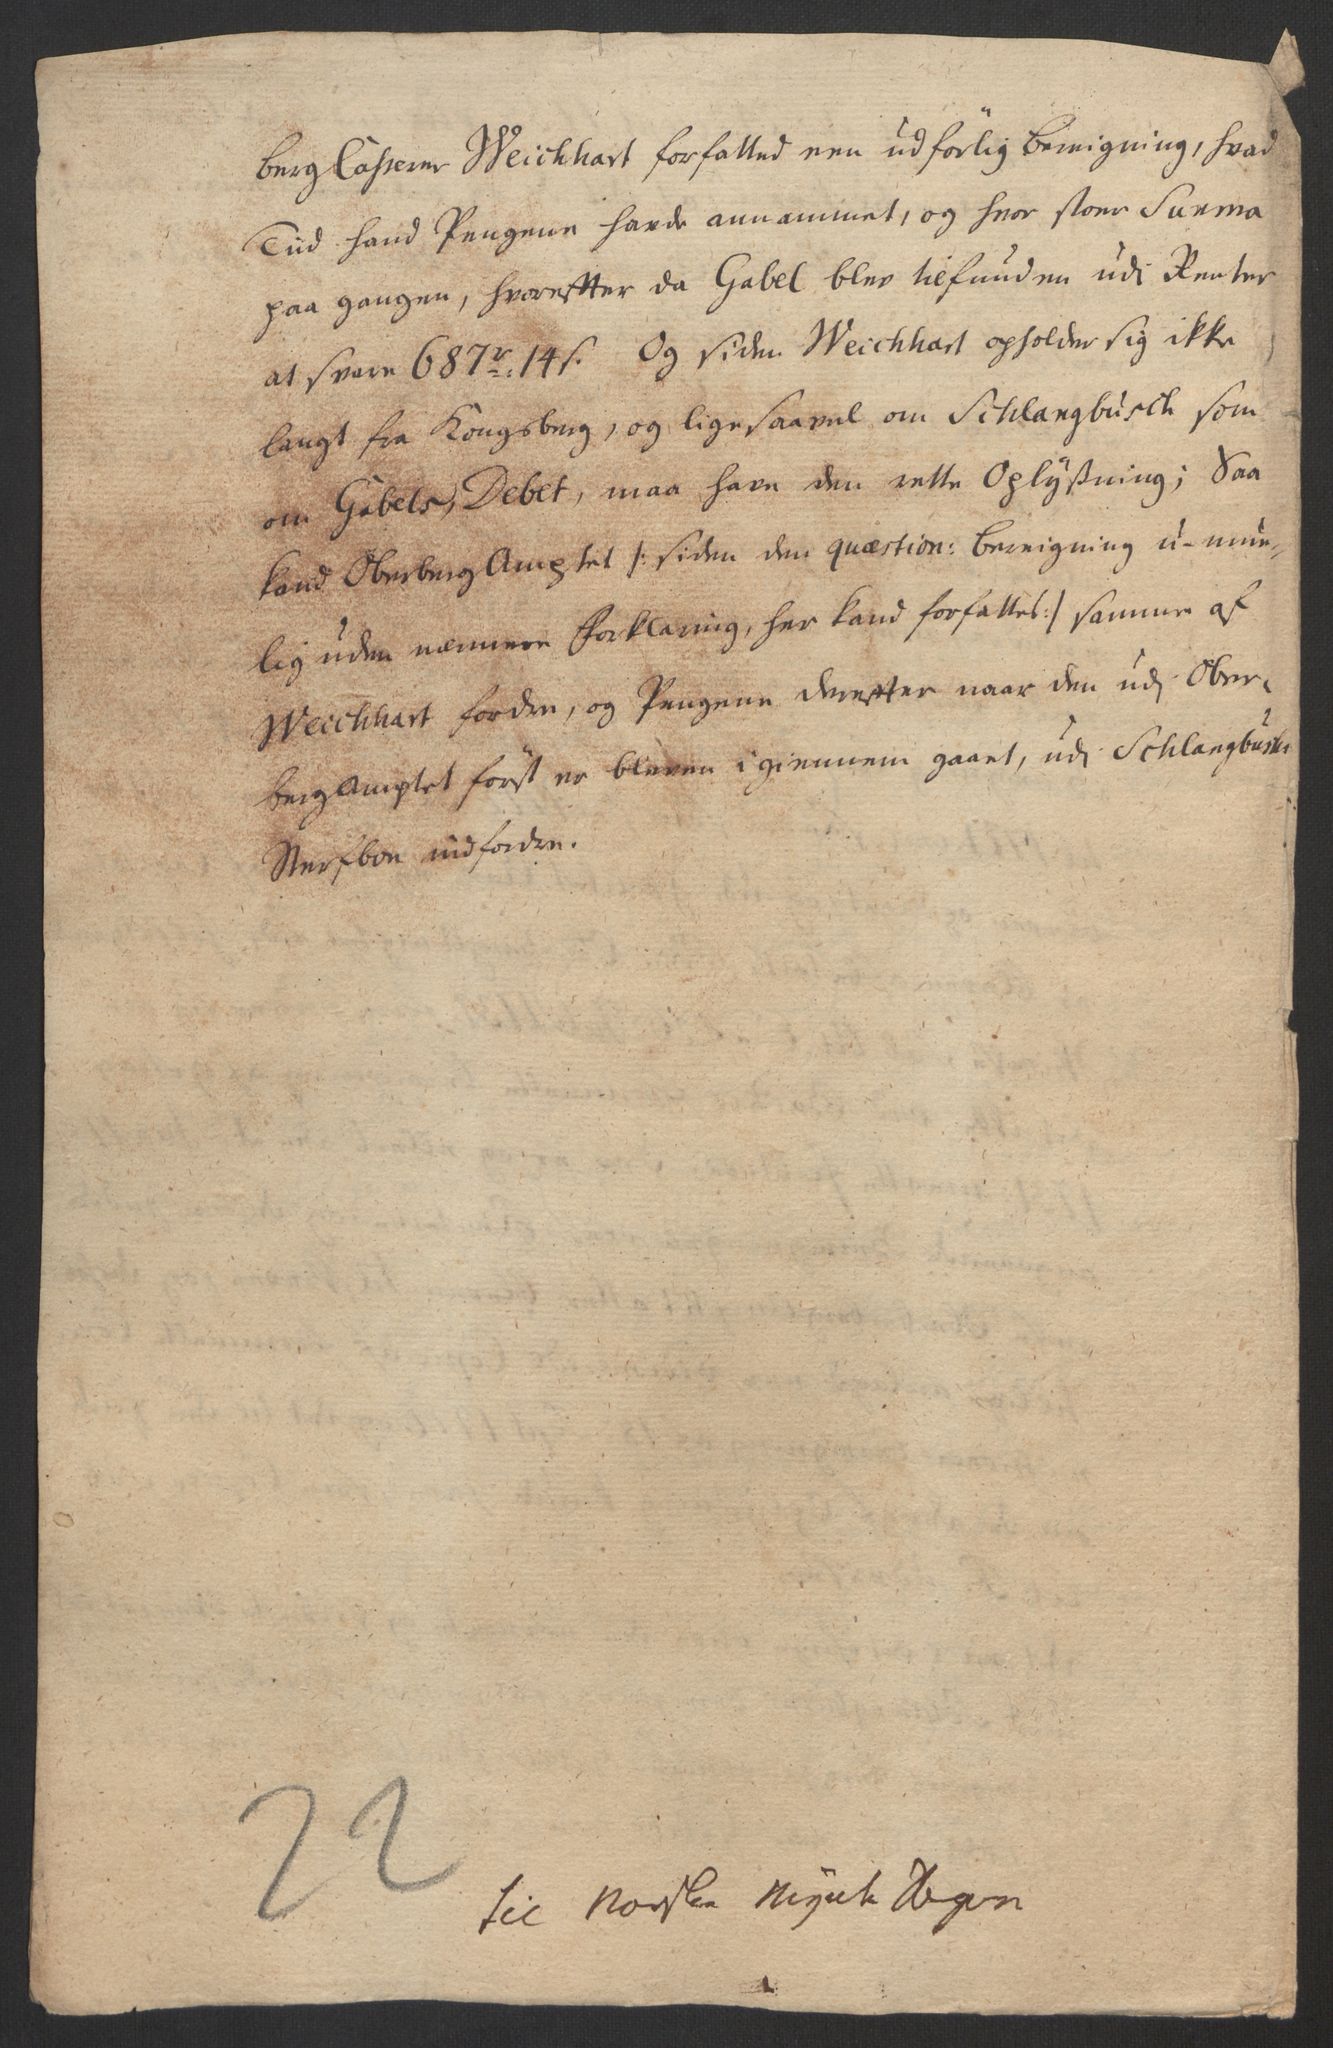 berg Casserer Weichhart forfatted een udförlig bereigning, hvad
Tiid hand Pengene havde annammet, og hvor stoer Summa
paa gangen, hvorefter da Gabel blev tilfunden udi Renter
at svare 687 r: 14 s. Og siden Weichhart opholder sig ikke
langt fra Kongsberg, og ligesaavel om Schlangbusch som
om Gabels, Debet, maa have den rette Oplÿsning; Saa
kand Oberberg Amptet /: siden den quæstion: bereigning u-mue-
lig uden nermere Forklaring, her kand forfattes :/ samme af
Weichhart fordre, og Pengene derefter naar den udj Ober-
berg Amptet först er bleven igiennem gaaet, udj Schlangbusks
Sterfboe indfordre.
22
til Norske Mÿnte